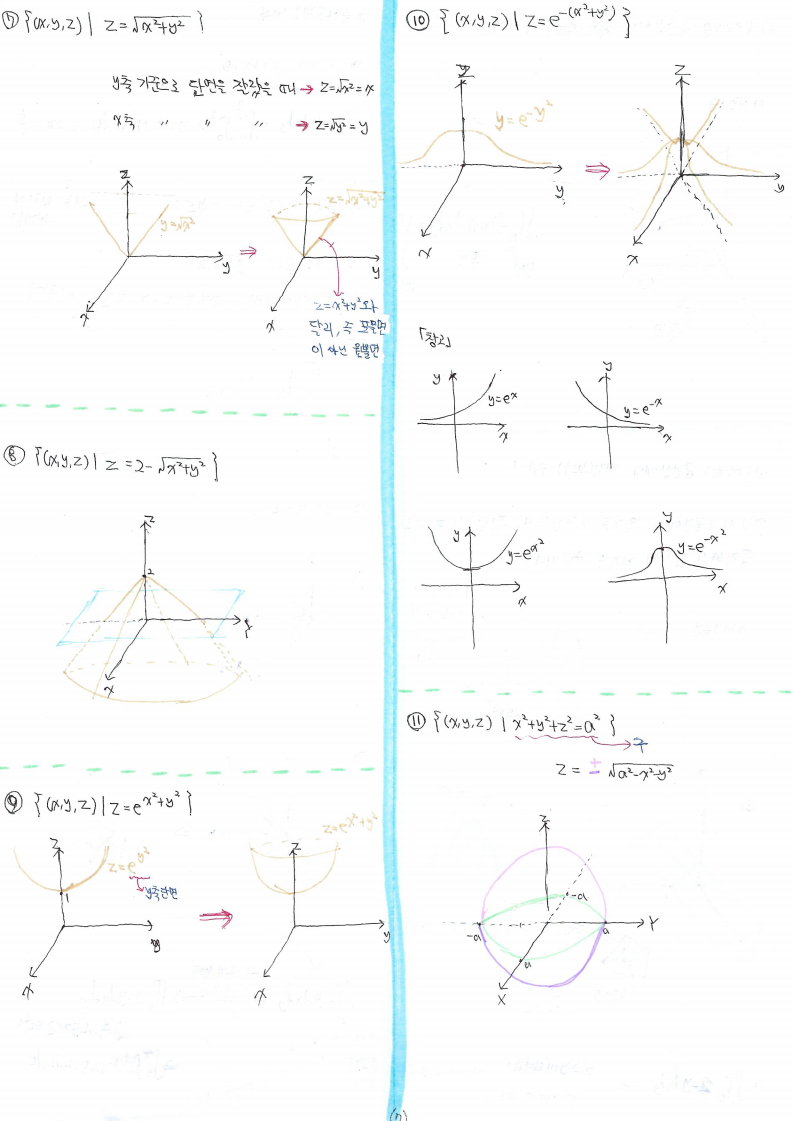 ⑦ {(x,y,z) | z=√x²+y² }
y축 기준으로 단면을 잘랐을 때 → z=√x²=x
x축 〃 〃 〃 → z=√y²=y
z
y=√x²
y
x
⇒
z
z=√x²+y²
y
x
z=x²+y²와
달리, 즉 포물면
이 아닌 원뿔면
⑧ {(x,y,z) | z=2-√x²+y² }
z
2
y
x
⑨ {(x,y,z) | z=e^(x²+y²) }
z
z=e^(y²)
y축단면
1
y
x
⇒
z
z=e^(x²+y²)
y
x
⑩ {(x,y,z) | z=e^-(x²+y²) }
z
y=e^(-y²)
y
x
⇒
z
y
x
「참고」
y
y=e^x
x
y
y=e^-x
x
y
y=e^(x²)
x
y
y=e^(-x²)
x
⑪ {(x,y,z) | x²+y²+z²=a² }
→ 구
z = ± √a²-x²-y²
z
-a
-a
a
a
Y
X